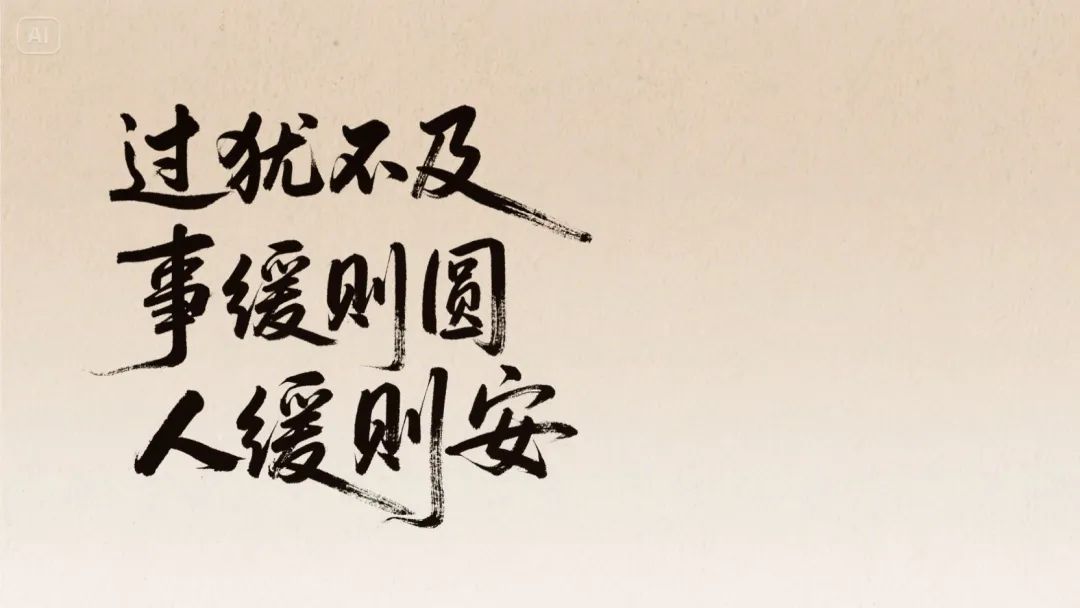 AI
过犹不及
事缓则圆
人缓则安